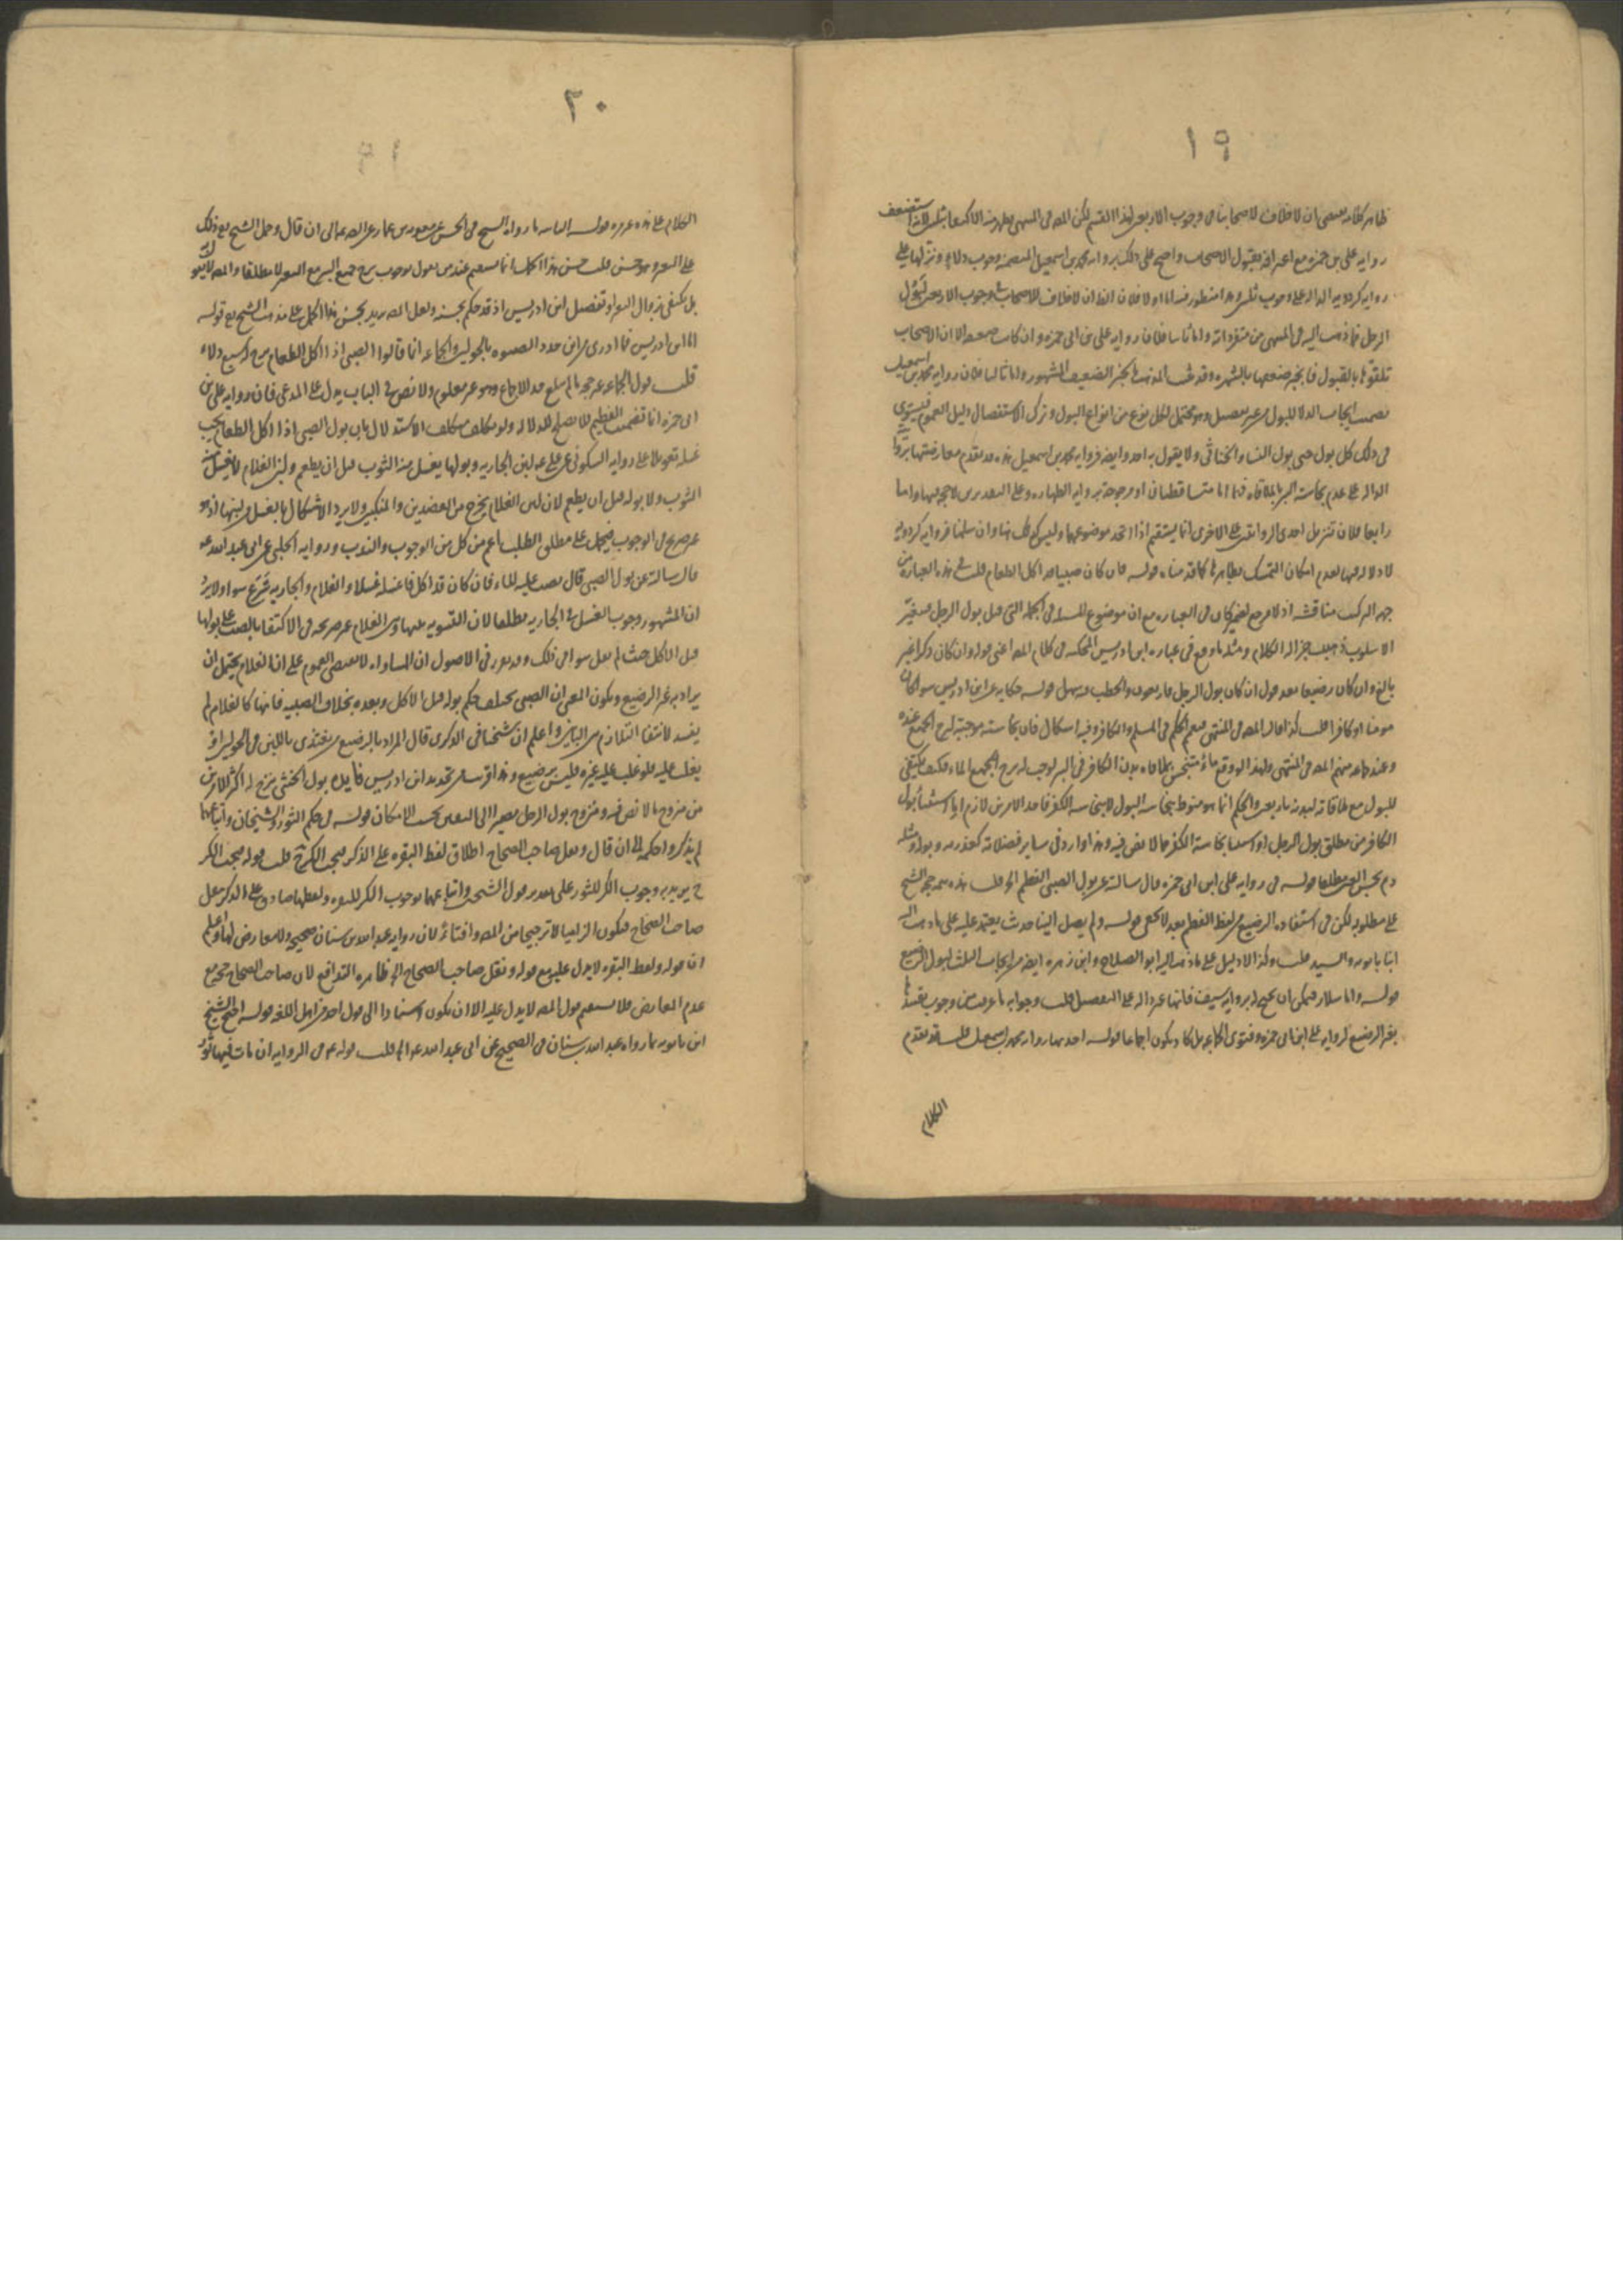 ١٩
ظاهر كلامه يقتضى ان لا خلاف لاصحابنا فى وجوب الاربعين لهذا القسم لكن المصـ فى المنتهى الاكتفا بثلثين لانه استضعف
رواية على بن حمزه مع اعترافه بقبول الاصحاب واحتج على ذلك برواية محمد بن اسمعيل المتضمنة وجوب دلاء ونزلها على
رواية كردويه الداله على وجوب ثلثين وهذا منظور فيه اما اولا فلان الظ ان لا خلاف للاصحاب فى وجوب الاربعين لبول
الرجل فما ذهب اليه فى المنتهى من متفرداته واما ثانيا فلان رواية على بن ابى حمزه وان كانت ضعيفة الا ان الاصحاب
تلقوها بالقبول فانجبر ضعفها بالشهره وقد المذهب بالخبر الضعيف المشهور واما ثالثا فلان رواية محمد بن اسمعيل
تضمنت ايجاب الدلاء للبول من غير تفصيل وهو محتمل لكل نوع من انواع البول وترك الاستفصال دليل العموم فيستوى
فى ذلك كل بول حتى بول النساء والخناثى ولا يقول به احد وايضا فرواية محمد بن اسمعيل هذه قد تقدم معارضتها بروايته
الداله على عدم نجاسة البير بالملاقاه فهما اما متساقطتان او مرجوحة برواية الطهاره وعلى التقديرين لا حجة فيها واما
رابعا فلان تنزيل احدى الروايتين على الاخرى انما يستقيم اذا اتحد موضوعهما وليس كذلك هنا وان سلمنا فرواية كردويه
لا دلالة فيها لعدم امكان التمسك بظاهرها كما قدمناه قولـه فان كان صبيا قد اكل الطعام قلت فى هذه العباره من
جهة التركيب مناقشه اذ لا مرجع لضمير كان فى العباره مع ان موضوع المسئله فى الجمله التى قبل بول الرجل فيتغير
الاسلوب فذهبت جزالة الكلام ومثله ما وقع فى عبارة ابن ادريس المحكيه فى كلام المصـ اعنى قوله وان كان ذكرا غير
بالغ وان كان رضيعا بعد قوله ان كان بول الرجل فاربعون والخطب سهل قولـه حكاية عن ابن ادريس سواء كان
مومنا او كافرا قلت كذا قال المصـ فى المنتهى فعمم الحكم فى المسلم والكافر وفيه اشكال فان نجاسته موجبة لنزح الجميع عنده
وعند جماعة منهم المصـ فى المنتهى ولهذا لو وقع ماء متنجس بملاقاة بدن الكافر فى البير لوجب له نزح الجميع الماء فكيف يكتفى
للبول مع ملاقاته لبدنه باربعين والحكم انما هو منوط بنجاسة البول لا بنجاسة الكفر فاحد الامرين لازم اما استثناء بول
الكافر من مطلق بول الرجل او نجاسة الكفر مما لا نص فيه وهذا وارد فى ساير فضلاته كعذرته وبوله ومثله
دم نجس العين مطلقا قولـه فى رواية على ابن ابى حمزه قال سالته عن بول الصبى الفطيم الخ قلت هذه حجة الشيخ
على مطلوبه لكن فى استفادة الرضيع من لفظ الفطيم بعد لا يخفى قولـه ولم يصل الينا حديث يعتمد عليه على ما ذهب اليه
ابنا بابويه والسيد قلت وكذا لا دليل على ما ذهب اليه ابو الصلاح وابن زهره ايضا من ايجاب الثلث لبول الرضيع
قولـه واما سلار فيمكن ان يحتج له برواية سيف فانها غير داله على التفصيل قلت وجوابه ما عرفت من وجوب تقييدها
بغير الرضيع لرواية على ابن ابى حمزه وفتوى الجماعه بل كاد يكون اجماعا قولـه احديهما رواية محمد بن اسمعيل قلت قد تقدم
الكلام
٢٠
الكلام على هذه قولـه الثانية ما رواه الشيخ فى الحسن عن معويه بن عمار عن الصـ الى ان قال وحمل الشيخ مع ذلك
على التغير وهو حسن قلت حسن هذا الحمل انما يستقيم عند من يقول بوجوب نزح جميع البير مع التغير مطلقا والمصـ لا يقول به
بل يكتفى بزوال التغير او تفصيل ابن ادريس اذ قد حكم بحسنه ولعل المصـ يريد بحسن هذا الحمل على مذهب الشيخ مع قولـه
اما ابن ادريس فما ادرى من اين حدد الصبوه بالحولين والجماعه انما قالوا الصبى اذا اكل الطعام نزح له سبع دلاء
قلت قول الجماعه غير حجة ما لم يبلغ حد الاجماع وهو غير معلوم ولا نص فى الباب يدل على المدعى فان رواية على بن
ابى حمزه انما تضمنت الفطيم فلا تصلح للدلاله ولو تكلف متكلف الاستدلال بان بول الصبى اذا اكل الطعام يجب
غسله تعويلا على رواية السكونى عن على عـ لبن الجاريه وبولها يغسل منه الثوب قبل ان يطعم ولبن الغلام لا يغسل منه
الثوب ولا بوله قبل ان يطعم لان لبن الغلام يخرج من العضدين والمنكبين ولا يرد الاشكال بالغسل من لبنها اذ هو
غير صريح فى الوجوب فيحمل على مطلق الطلب اعم من كل من الوجوب والندب ورواية الحلبى عن ابى عبد الله عـ
قال سالته عن بول الصبى قال يصب عليه الماء فان كان قد اكل فاغسله غسلا والغلام والجاريه شرع سواء ولا يرد
ان المشهور وجوب الغسل فى الجاريه مطلقا لان التسويه بينها وبين الغلام غير صريحه فى الاكتفا بالصب على بولها
قبل الاكل حيث لم يقل سواء فى ذلك وقد تقرر فى الاصول ان المساواه لا تقتضى العموم على ان الغلام يحتمل ان
يراد به غير الرضيع ويكون المعنى ان الصبى يختلف حكم بوله قبل الاكل وبعده بخلاف الصبيه فانها كالغلام لم
يفسد لانتفا التلازم من الثانى واعلم ان شيخنا فى الذكرى قال المراد بالرضيع من يغتذى باللبن فى الحولين او
يغلب عليه فلو غلب عليه غيره فليس برضيع وهذا اقرب من تحديد ابن ادريس فايده بول الخنثى ينزح له اكثر الامرين
من منزوح ما لا نص فيه ومنزوح بول الرجل مصيرا الى اليقين بحسب الامكان قولـه فى حكم الثور الشيخان واتباعهما
لم يذكروا حكمه الى ان قال ونقل صاحب الصحاح اطلاق لفظ البقره على الذكر فيجب الكر ح قلت قوله فيجب الكر
ح يريد به وجوب الكر للثور على تقدير قول الشيخين واتباعهما بوجوب الكر للبقره ولفظها صادق على الذكر بنقل
صاحب الصحاح فيكون الزاميا لا ترجيحا من المصـ وافتاء لان رواية عبد الله بن سنان صحيحه ولا معارض لها واعلم
ان قوله ولفظ البقره لا يدل عليه مع قوله ونقل صاحب الصحاح الخ ظاهره التدافع لان صاحب الصحاح حجة مع
عدم المعارض فلا يستقيم قول المصـ لا يدل عليه الا ان يكون استنادا الى قول اخر من اهل اللغه قولـه احتج الشيخ
ابن بابويه بما رواه عبد الله بن سنان فى الصحيح عن ابى عبد الله عـ الخ قلت قوله عـ فى الروايه ان مات فيها ثور